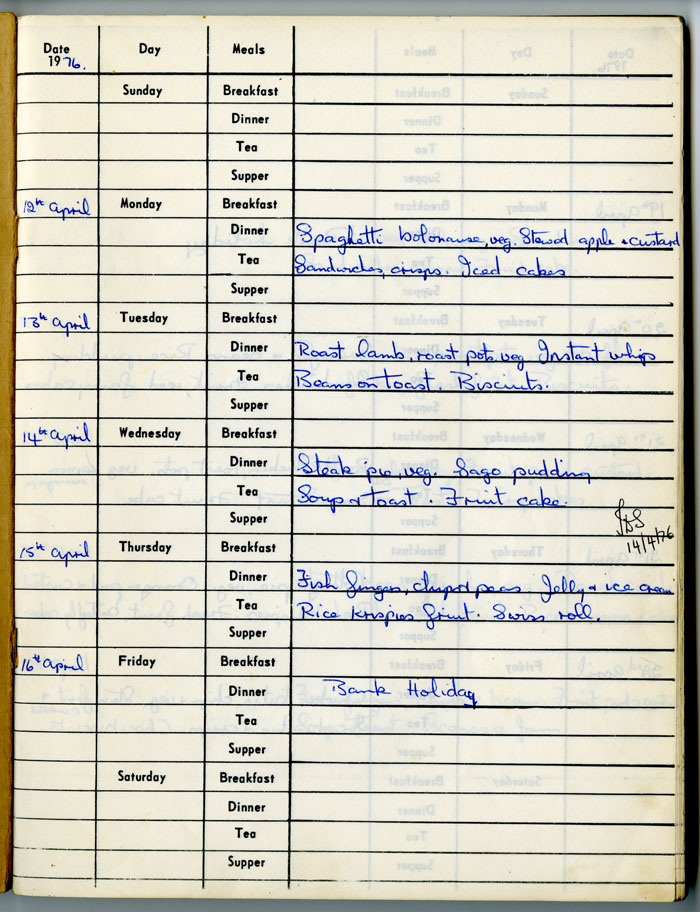 Date 1976. Day Meals
Sunday Breakfast
Dinner
Tea
Supper
12th April Monday Breakfast
Dinner Spaghetti bolonaise, veg. Stewed apple & custard
Tea Sandwiches, crisps. Iced cakes
Supper
13th April Tuesday Breakfast
Dinner Roast lamb, roast pots, veg Instant whip
Tea Beans on toast. Biscuits.
Supper
14th April Wednesday Breakfast
Dinner Steak pie, veg. Sago pudding
Tea Soup & toast. Fruit cake.
Supper
14/4/76
15th April Thursday Breakfast
Dinner Fish fingers, chips & peas Jelly & ice cream
Tea Rice Krispies fruit. Swiss roll.
Supper
16th April Friday Breakfast
Dinner Bank Holiday
Tea
Supper
Saturday Breakfast
Dinner
Tea
Supper